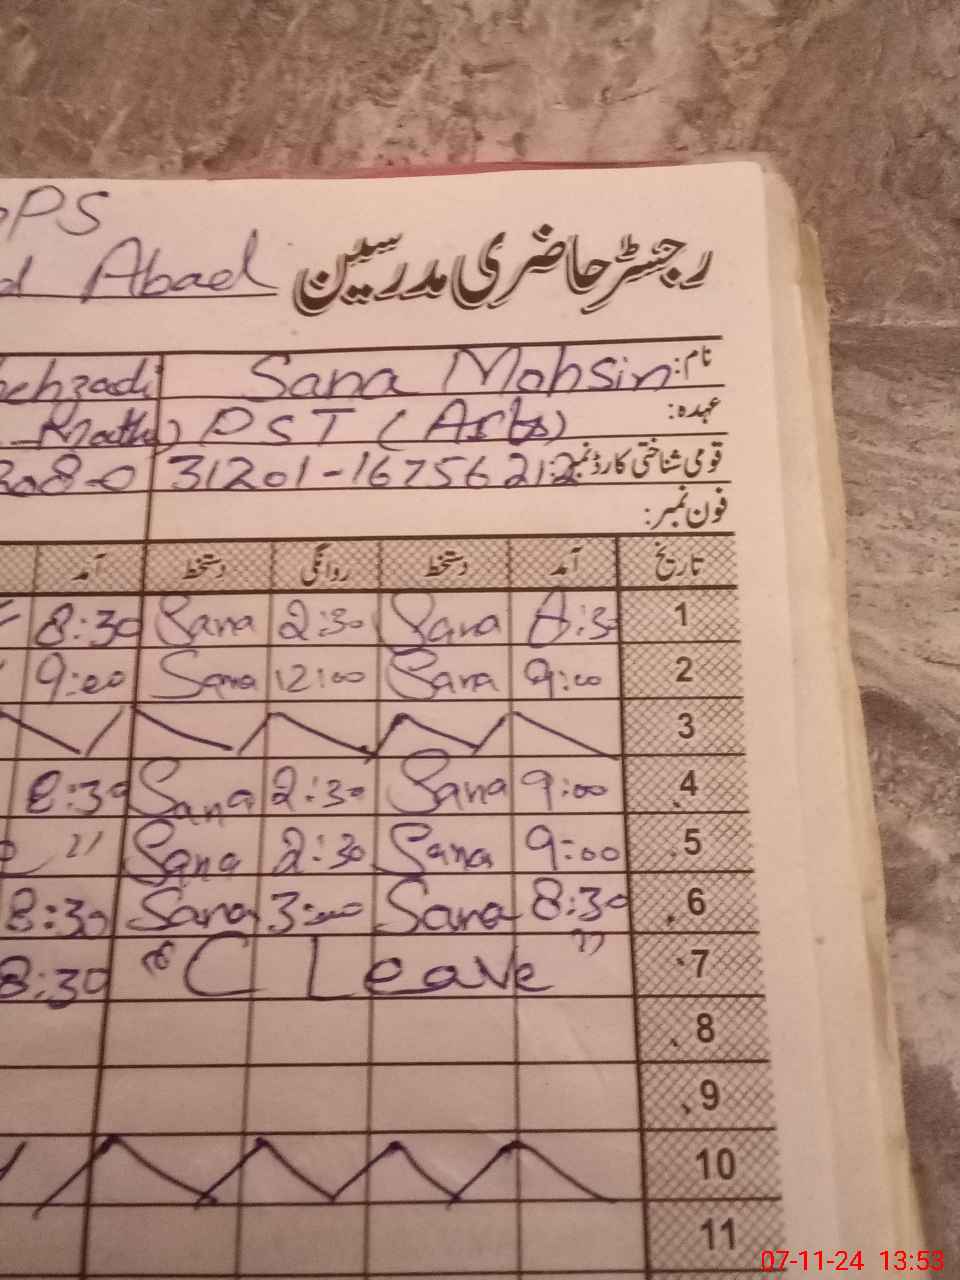 PS
Abad رجسٹر حاضری مدرسین
نام: Sana Mohsin
عہدہ: PST (Arts)
قومی شناختی کارڈ نمبر: 31201-1675621-2
فون نمبر:
تاریخ آمد دستخط روانگی دستخط آمد
1 8:30 Sana 2:30 Sana 8:30
2 9:00 Sana 12:00 Sana 9:00
3
4 9:00 Sana 2:30 Sana 8:30
5 9:00 Sana 2:30 Sana "
6 8:30 Sana 3:00 Sana 8:30
7 "C Leave" 8:30
8
9
10
11
07-11-24 13:53